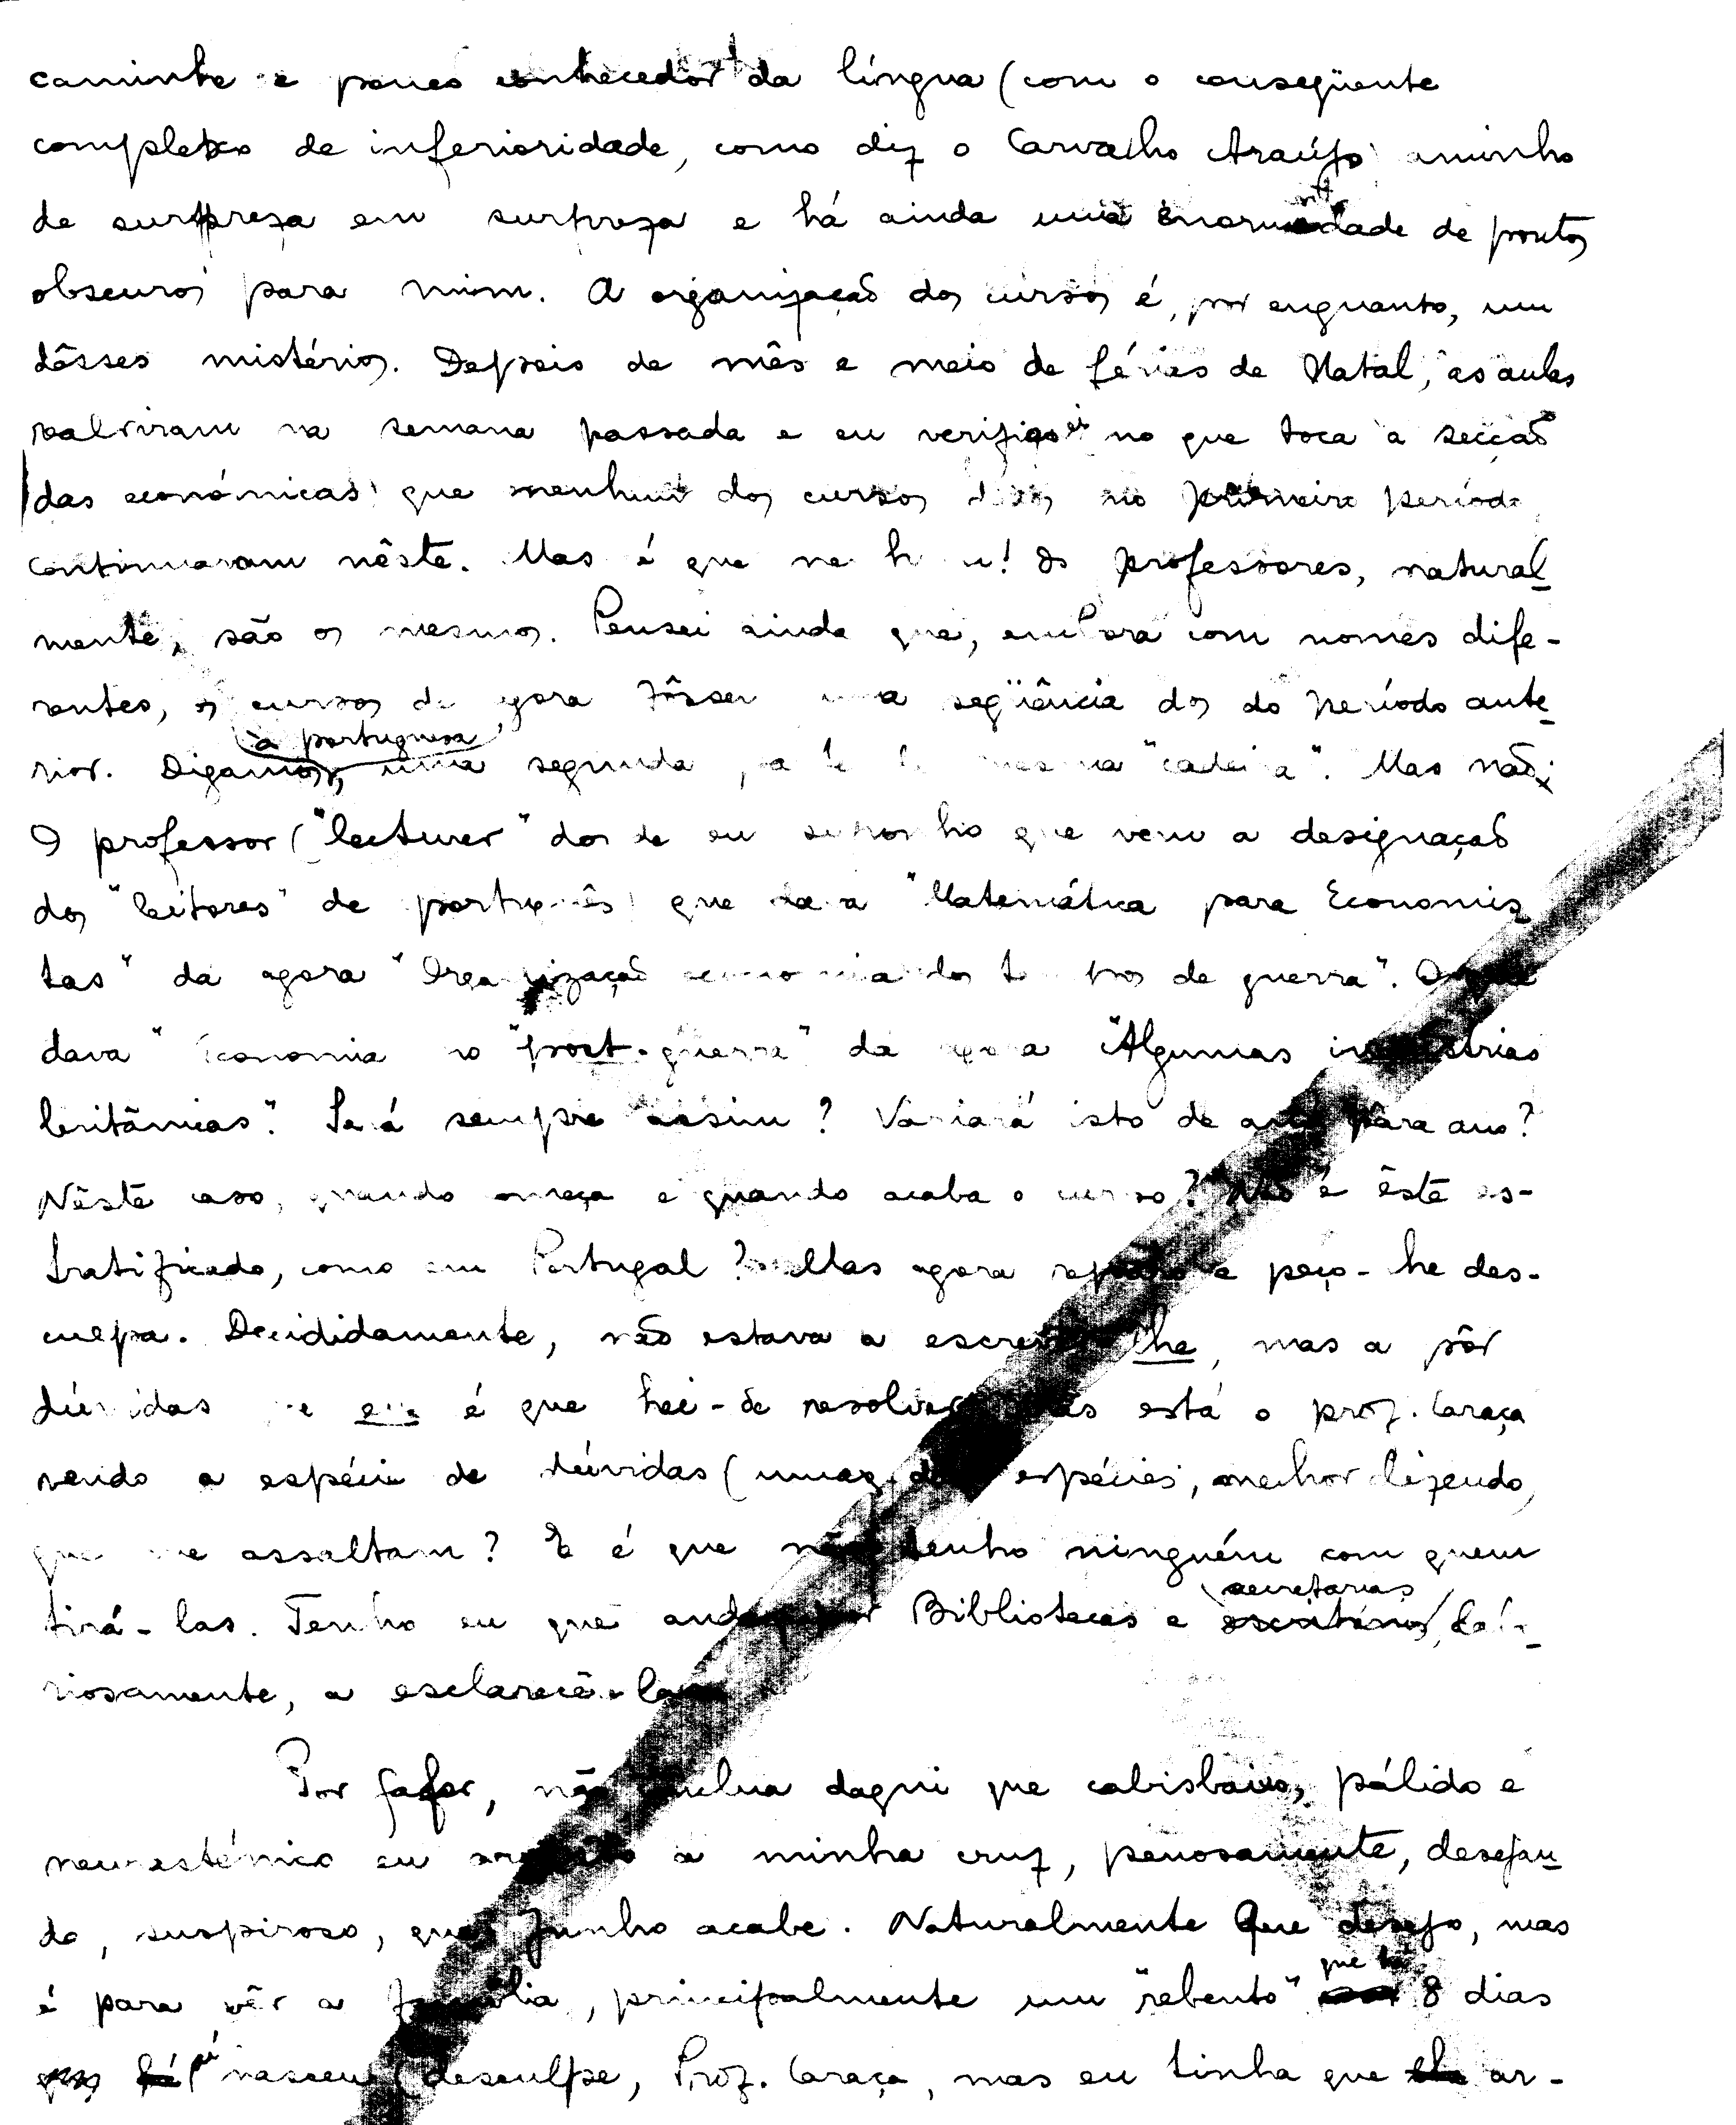 caminha e pouco conhecedor da língua (com o conseqüente
complexo de inferioridade, como diz o Carvalho Araújo) aminho
de surpreza em surpreza e há ainda uma enormidade de pontos
obscuros para mim. A organização dos cursos é, por enquanto, um
dêsses mistérios. Depois de mês e meio de férias de Natal, as aulas
reabriram na semana passada e eu verifiquei no que toca a secção
das económicas) que nenhum dos cursos no primeiro período
continuaram nêste. Mas é que nenhum! Os professores, natural-
mente, são os mesmos. Pensei ainda que, embora com nomes dife-
rentes, os cursos de agora fôssem uma seqüência dos do período ante-
rior. Digamos, à portuguesa, uma segunda mesma "cadeira". Mas não:
O professor ("lecturer" donde eu suponho que vem a designação
dos "leitores" de português) que dava "Matemática para Economis-
tas" dá agora "Organização dos tempos de guerra". O que
dava "Economia no "post-guerra" dá agora "Algumas indústrias
britânicas". Será sempre assim? Variará isto de ano para ano?
Nêste caso, quando começa e quando acaba o curso? Não é êste es-
tratificado, como em Portugal? Mas agora reparo e peço-lhe des-
culpa. Decididamente, não estava a escrever-lhe, mas a pôr
dúvidas que eu é que hei-de resolver. Mas está o prof. Caraça
vendo a espécie de dúvidas (umas das espécies, melhor dizendo,
que me assaltam? E é que não tenho ninguém com quem
tirá-las. Tenho eu que andar por Bibliotecas e secretarias,
riosamente, a esclarecê-las.
Por fafor, não conclua daqui que cabisbaixo, pálido e
neurasténico eu arrasto a minha cruz, penosamente, desejan-
do, suspiroso, que Junho acabe. Naturalmente que desejo, mas
é para vêr a família, principalmente um "rebento" que há 8 dias
nasceu (desculpe, Prof. Caraça, mas eu tinha que ar-